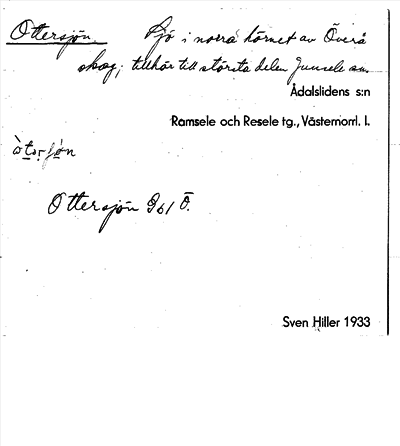 Ottersjön. Sjö i norra hörnet av Överå
skog; tillhör till största delen Junsele sn.
Ådalslidens s:n
Ramsele och Resele tg., Västernorrl. l.
Ottersjön 961 Ö.
Sven Hiller 1933